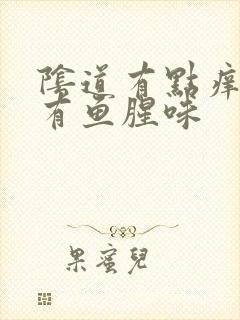 陰道有點痒
有鱼腥味
果蜜兒